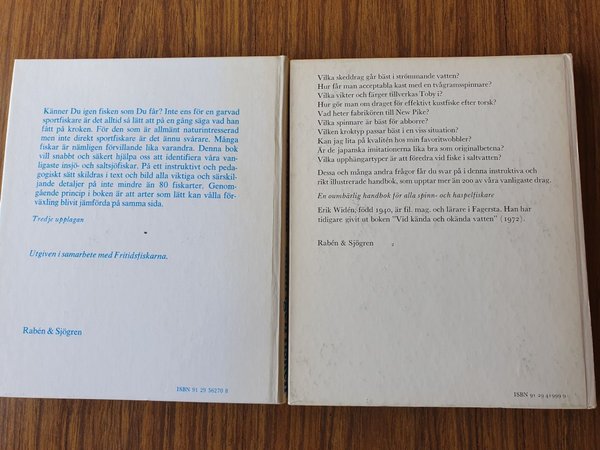 Känner Du igen fisken som Du får? Inte ens för en garvad
sportfiskare är det alltid så lätt att på en gång säga vad han
fått på kroken. För den som är allmänt naturintresserad
men inte direkt sportfiskare är det ännu svårare. Många
fiskar är nämligen förvillande lika varandra. Denna bok
vill snabbt och säkert hjälpa oss att identifiera våra van-
ligaste insjö- och saltsjöfiskar. På ett instruktivt och peda-
gogiskt sätt skildras i text och bild alla viktiga och särskil-
jande detaljer på inte mindre än 80 fiskarter. Genom-
gående princip i boken är att arter som lätt kan vålla för-
växling blivit jämförda på samma sida.
Tredje upplagan
Utgiven i samarbete med Fritidsfiskarna.
Rabén & Sjögren
ISBN 91 29 56270 8
Vilka skeddrag går bäst i strömmande vatten?
Hur får man acceptabla kast med en tvågramsspinnare?
Vilka vikter och färger tillverkas Toby i?
Hur gör man om draget för effektivt kustfiske efter torsk?
Vad heter fabrikören till New Pike?
Vilka spinnare är bäst för abborre?
Vilken kroktyp passar bäst i en viss situation?
Kan jag lita på kvalitén hos min favoritwobbler?
Är de japanska imitationerna lika bra som originalbetena?
Vilka upphängartyper är att föredra vid fiske i saltvatten?
Dessa och många andra frågor får du svar på i denna instruktiva och
rikt illustrerade handbok, som upptar mer än 200 av våra vanligaste drag.
En oumbärlig handbok för alla spinn- och haspelfiskare
Erik Widén, född 1940, är fil. mag. och lärare i Fagersta. Han har
tidigare givit ut boken "Vid kända och okända vatten" (1972).
Rabén & Sjögren
ISBN 91 29 41999 9